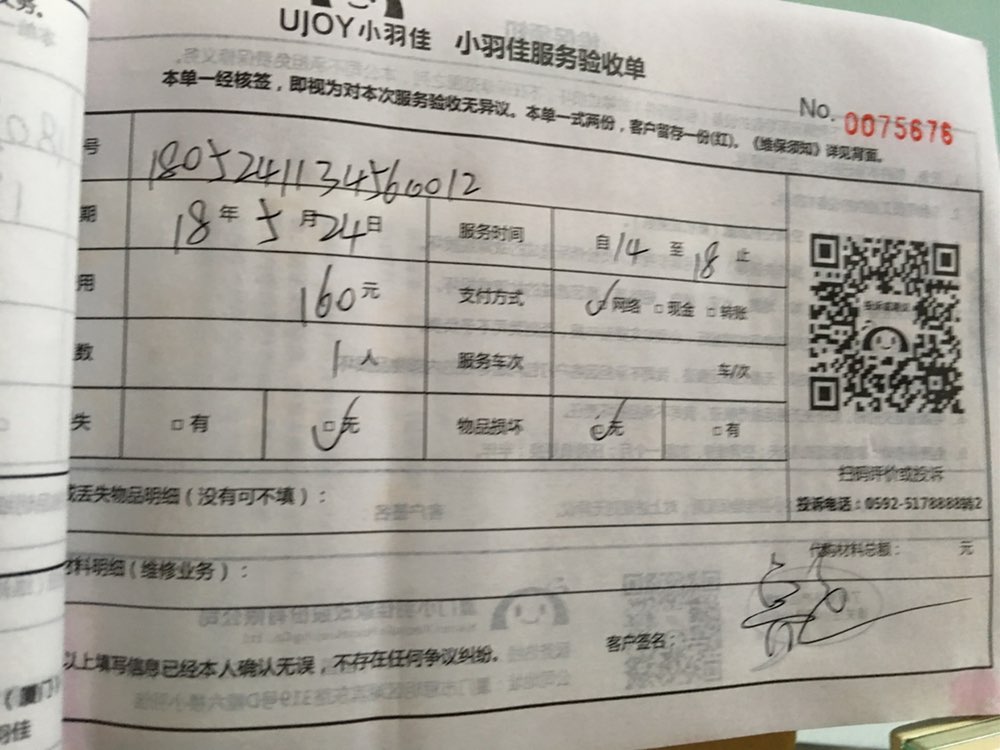 UJOY小羽佳 小羽佳服务验收单
本单一经核签，即视为对本次服务验收无异议。本单一式两份，客户留存一份(红)。《维保须知》详见背面。
No. 0075676
号 1805241134560012
期 18年5月24日 服务时间 自14至18止
用 160元 支付方式 网络 现金 转账
数 1人 服务车次 车/次
失 有 无 物品损坏 无 有
扫码评价或投诉
投诉电话：0592-5178888转2
或丢失物品明细（没有可不填）：
代购材料总额： 元
材料明细（维修业务）：
客户签名：
以上填写信息已经本人确认无误，不存在任何争议纠纷。